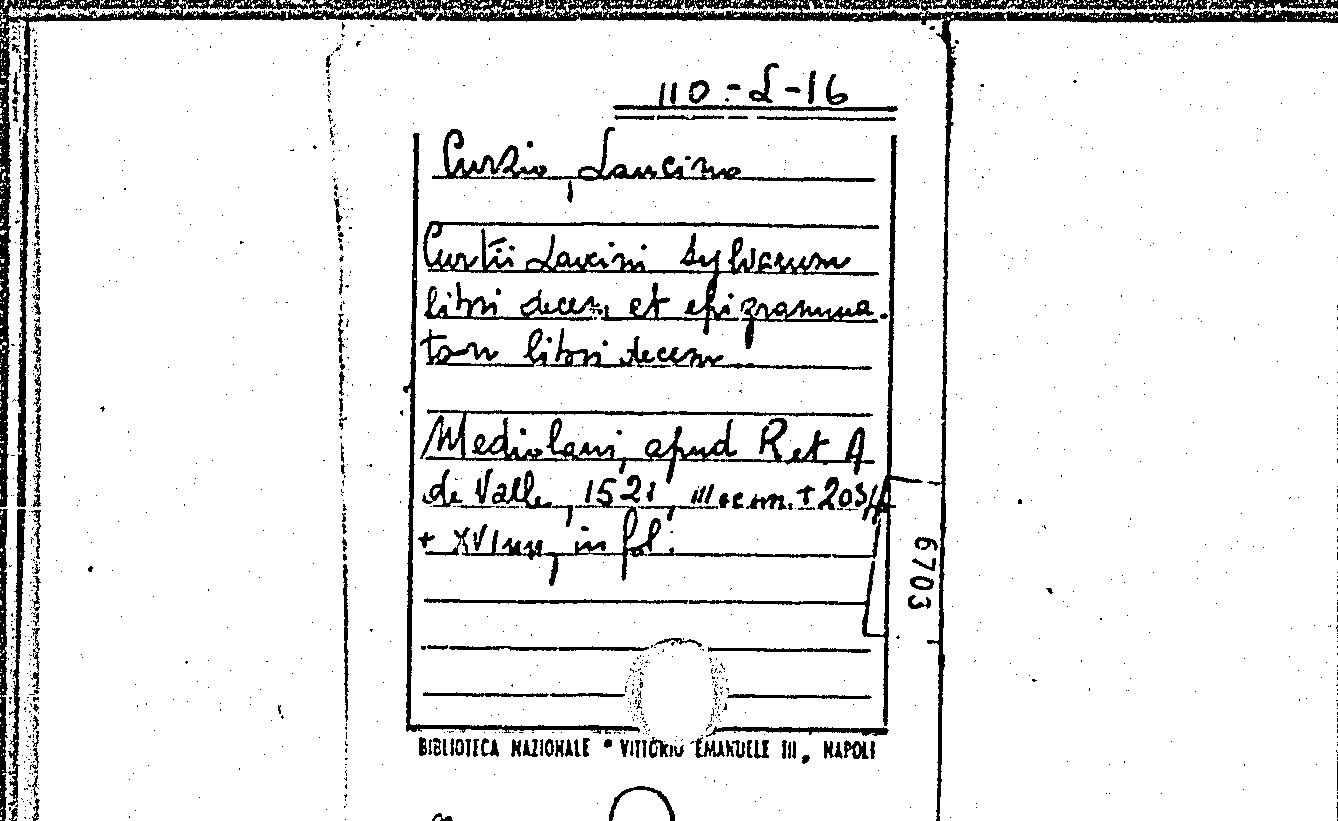 110-L-16
Curzio, Lancino
Curtii Lancini Sylvarum
libri decem et epigramma-
ton libri decem
Mediolani, apud R et A
de Valle, 1521, + 203
+ XVI nn, in fol.
6703
BIBLIOTECA NAZIONALE "VITTORIO EMANUELE III, NAPOLI